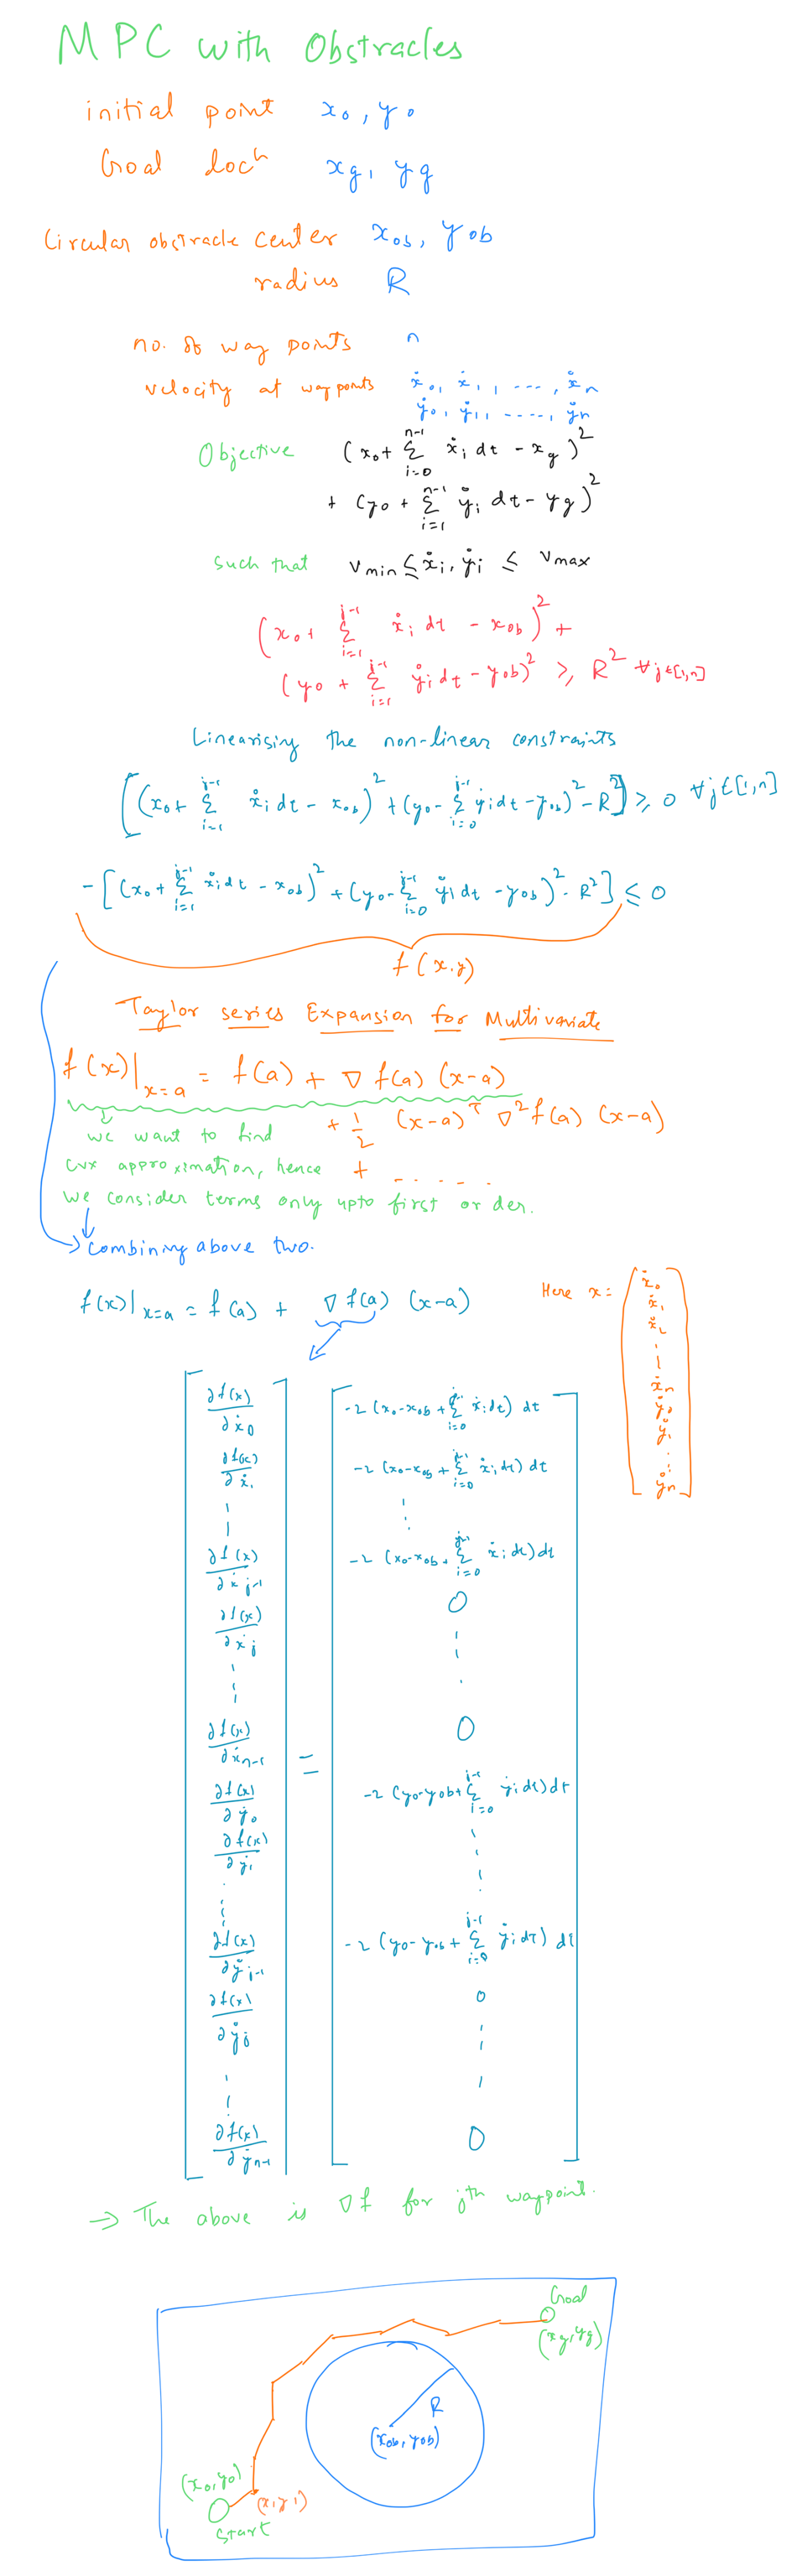 MPC with Obstracles
initial point x₀, y₀
Goal locⁿ x_g, y_g
Circular obstracle center x_ob, y_ob
radius R
no. of way points n
velocity at waypoints ẋ₀, ẋ₁, ...., ẋₙ
ẏ₀, ẏ₁, ....., ẏₙ
Objective (x₀ + Σ_{i=0}^{n-1} ẋᵢ dt - x_g)²
+ (y₀ + Σ_{i=1}^{n-1} ẏᵢ dt - y_g)²
such that v_min ≤ ẋᵢ, ẏᵢ ≤ v_max
(x₀ + Σ_{i=1}^{j-1} ẋᵢ dt - x_ob)² +
(y₀ + Σ_{i=1}^{j-1} ẏᵢ dt - y_ob)² ≥ R² ∀ j ∈ [1,n]
Linearising the non-linear constraints
[(x₀ + Σ_{i=1}^{j-1} ẋᵢ dt - x_ob)² + (y₀ - Σ_{i=0}^{j-1} ẏᵢ dt - y_ob)² - R²] ≥ 0 ∀ j ∈ [1,n]
-[(x₀ + Σ_{i=1}^{j-1} ẋᵢ dt - x_ob)² + (y₀ - Σ_{i=0}^{j-1} ẏᵢ dt - y_ob)² - R²] ≤ 0
f(x,y)
Taylor series Expansion for Multivariate
f(x)|_{x=a} = f(a) + ∇f(a) (x-a)
+ 1/2 (x-a)ᵀ ∇²f(a) (x-a)
we want to find
cvx approximation, hence + ......
we consider terms only upto first order.
→ Combining above two.
f(x)|_{x=a} = f(a) + ∇f(a) (x-a) Here x = [ẋ₀ ẋ₁ ẋ₂ ⋮ ẋₙ ẏ₀ ẏ₁ ⋮ ẏₙ]
∂f(x)/∂ẋ₀ -2 (x₀ - x_ob + Σ_{i=0}^{j-1} ẋᵢ dt) dt
∂f(x)/∂ẋ₁ -2 (x₀ - x_ob + Σ_{i=0}^{j-1} ẋᵢ dt) dt
⋮ ⋮
∂f(x)/∂ẋ_{j-1} -2 (x₀ - x_ob + Σ_{i=0}^{j-1} ẋᵢ dt) dt
∂f(x)/∂ẋ_j 0
⋮ ⋮
∂f(x)/∂ẋ_{n-1} = 0
∂f(x)/∂ẏ₀ -2 (y₀ - y_ob + Σ_{i=0}^{j-1} ẏᵢ dt) dt
∂f(x)/∂ẏ₁
⋮ ⋮
∂f(x)/∂ẏ_{j-1} -2 (y₀ - y_ob + Σ_{i=0}^{j-1} ẏᵢ dt) dt
∂f(x)/∂ẏ_j 0
⋮ ⋮
∂f(x)/∂ẏ_{n-1} 0
→ The above is ∇f for jᵗʰ waypoint.
Goal
(x_g, y_g)
R
(x_ob, y_ob)
(x₀, y₀)
(x₁, y₁)
Start